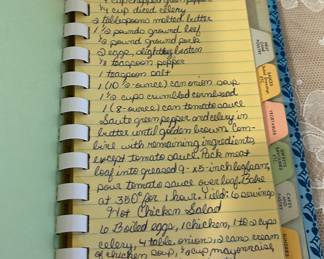 chopped green pepper
1/4 cup diced celery
2 tablespoons melted butter
1 1/2 pounds ground beef
1/2 pound ground pork
2 eggs, slightly beaten
teaspoon pepper
1 teaspoon salt
1 (10 1/2-ounce) can onion soup
1 1/2 cups crumbled cornbread
1 (8-ounce) can tomato sauce
Saute green pepper and celery in
butter until golden brown. Com-
bine with remaining ingredients
except tomato sauce. Pack meat
loaf into greased 9-x5-inch loafpan,
pour tomato sauce over loaf. Bake
at 350° for 1 hour. Yield: 6 servings
Hot Chicken Salad
6 Boiled eggs, 1 chicken, 1 to 2 cups
celery, 4 table. onion, 2 cans cream
of chicken soup, cup mayonnaise,
VEGETABLES